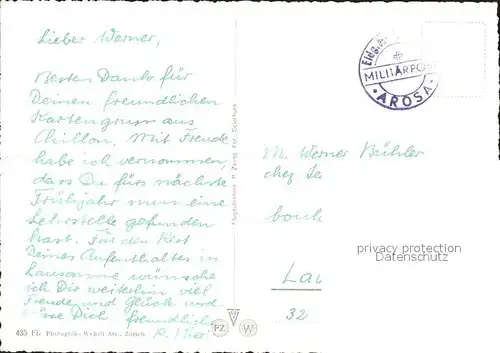 Lieber Werner,
Besten Dank für
Deinen freundlichen
Kartengruss aus
Chillon. Mit Freude
habe ich vernommen,
dass Du fürs nächste
Frühjahr nun eine
Lehrstelle gefunden
hast. Für den Rest
Deines Aufenthaltes in
Lausanne wünsche
ich Dir weiterhin viel
Freude und Glück und
grüsse Dich freundlich
435 Fl. Photoglob-Wehrli AG., Zürich
PZ W
MILITÄRPOST
• AROSA •
M. Werner Bühler
chez
Lau
32
privacy protection
Datenschutz